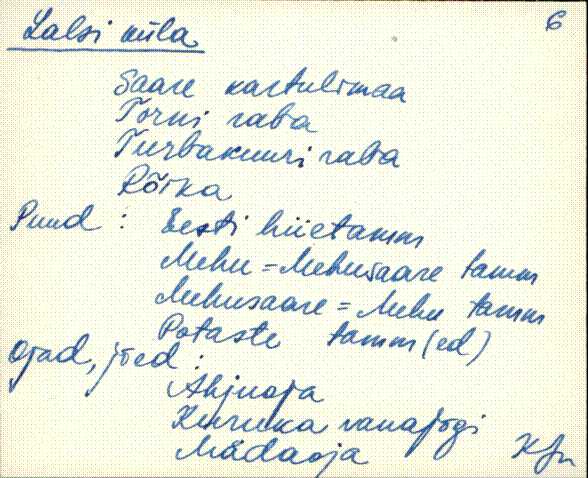 Lalsi küla 6
Saare kartulimaa
Torni raba
Turbakuuri raba
Rõika
Puud : Eesti hiietamm
Mehu = Mehusaare tamm
Mehusaare = Mehu tamm
Potaste tamm(ed)
Ojad, jõed :
Ahjuoja
vanajõgi
Mädaoja